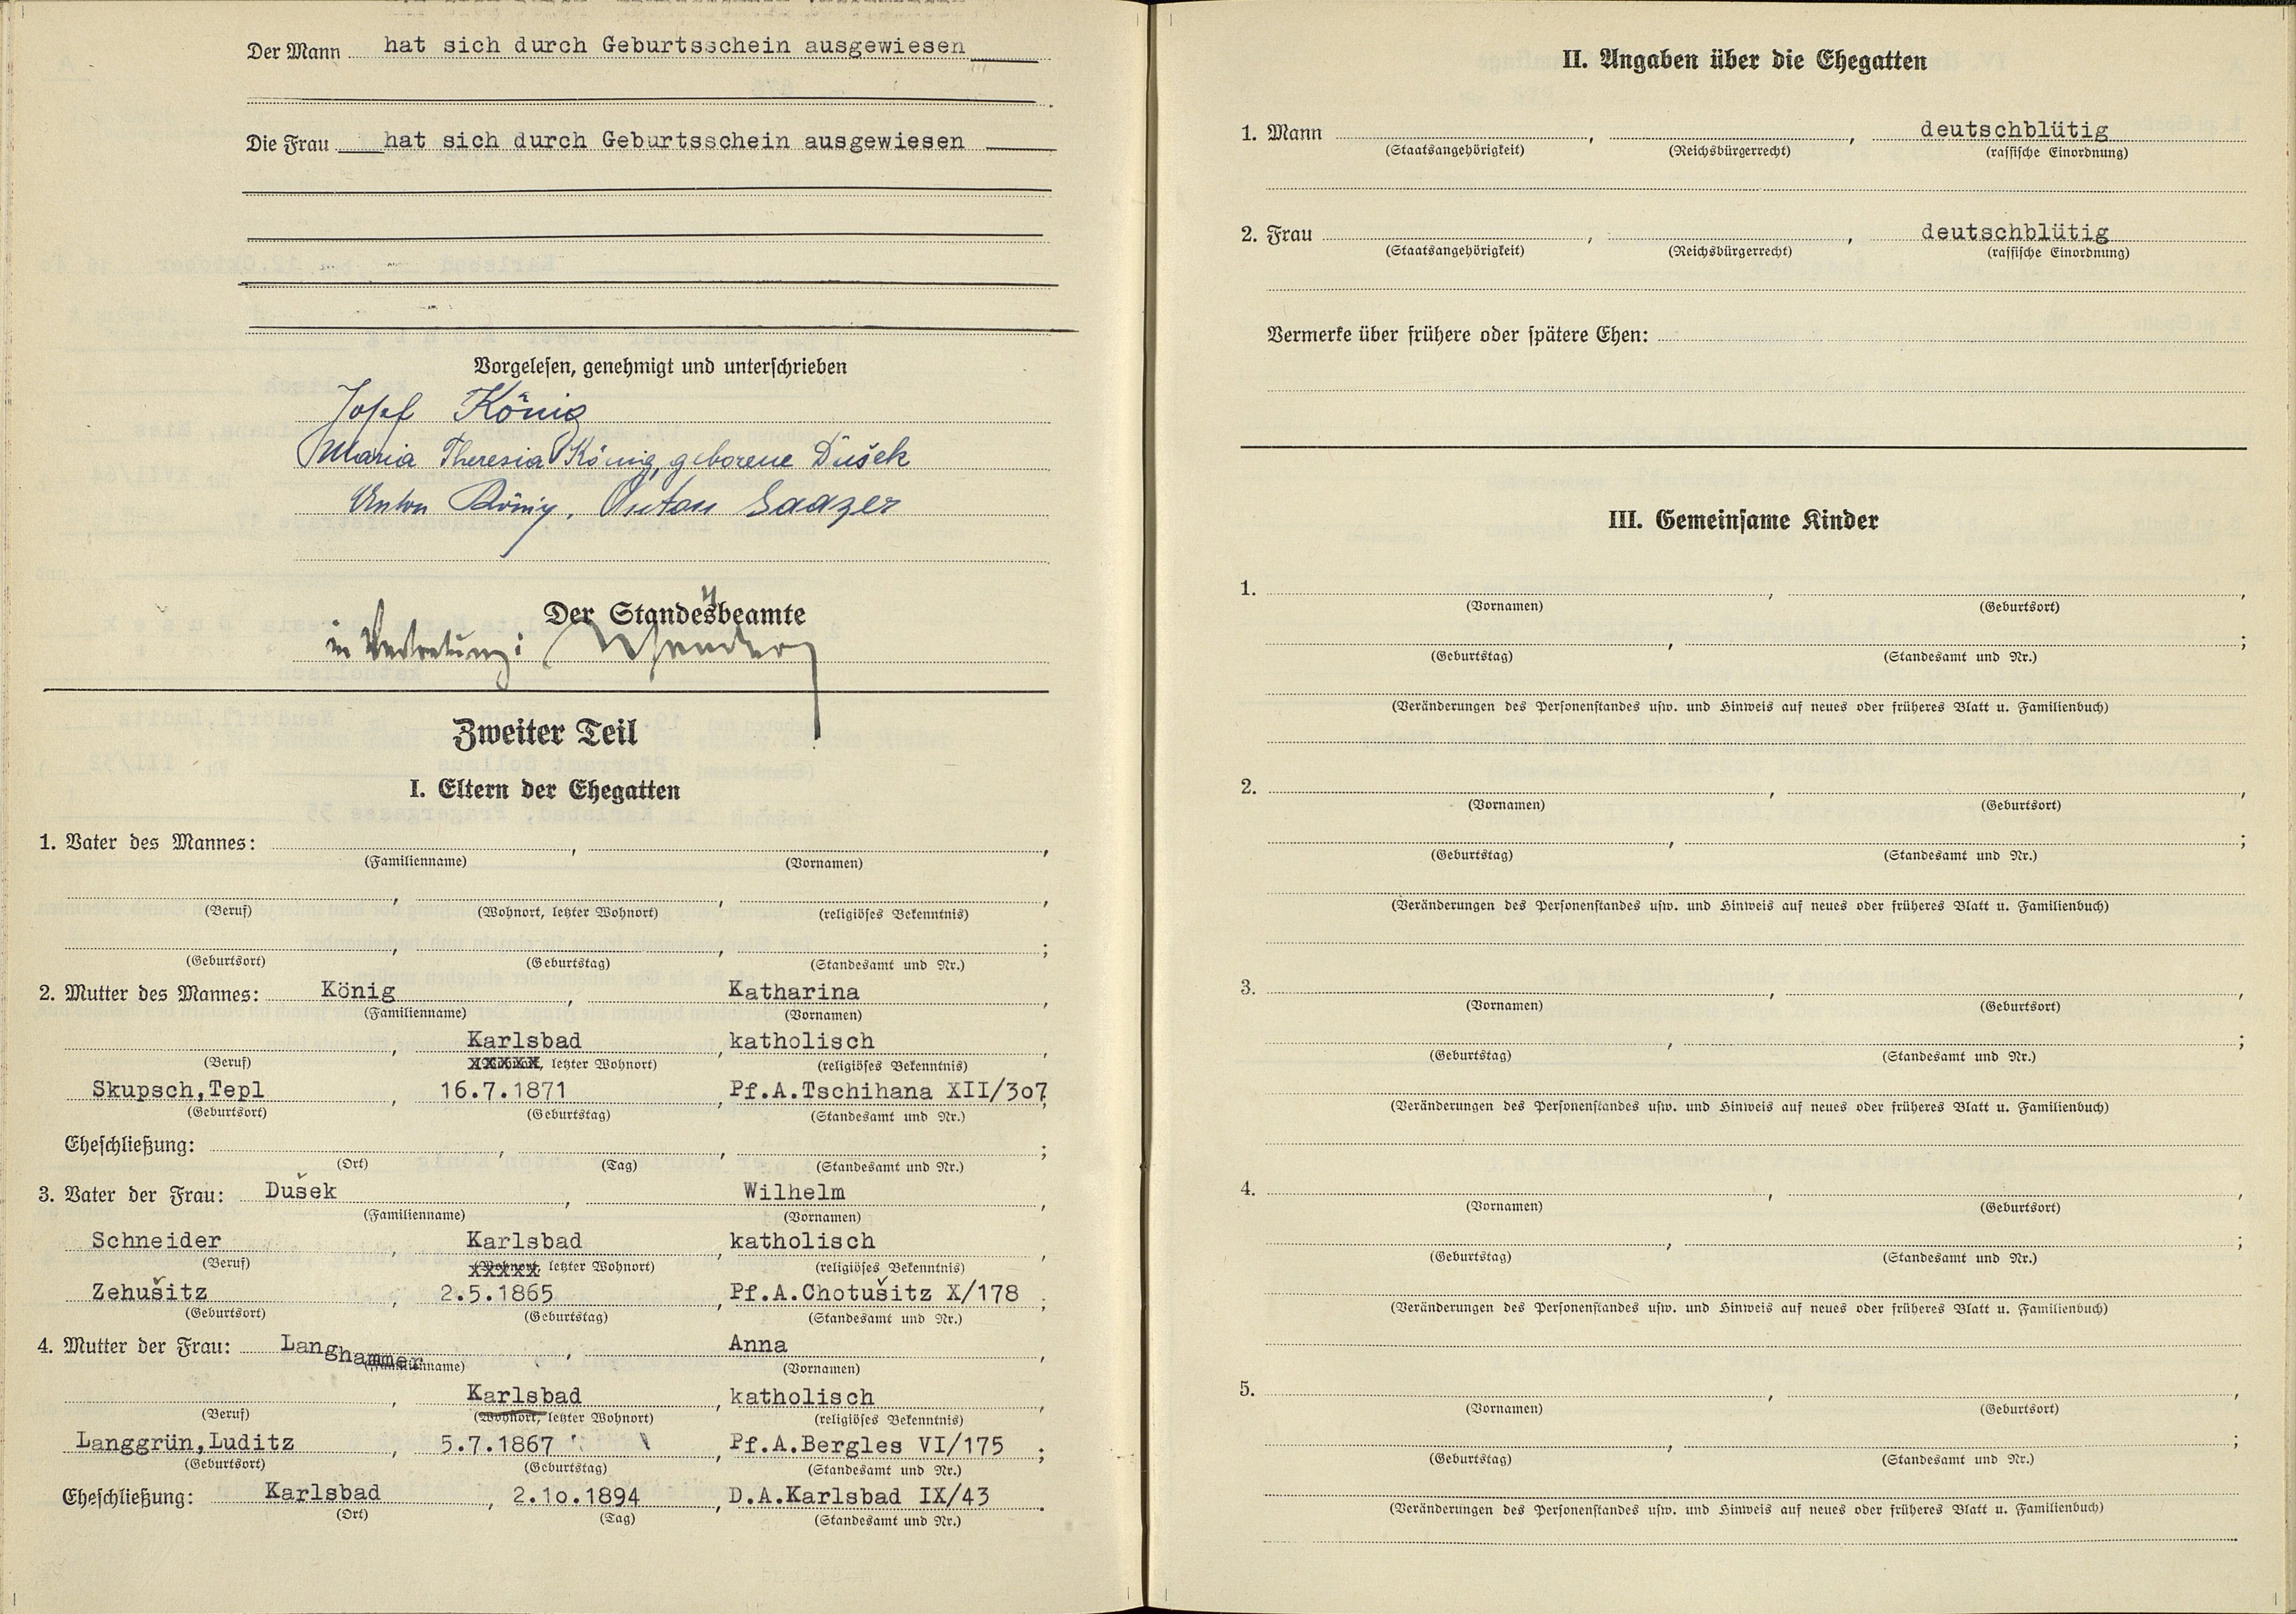 Der Mann hat sich durch Geburtsschein ausgewiesen
Die Frau hat sich durch Geburtsschein ausgewiesen
Vorgelesen, genehmigt und unterschrieben
Josef König
Maria Theresia König, geborene Dušek
Anton König, Anton Saazer
Der Standesbeamte
in Vertretung:
Zweiter Teil
I. Eltern der Ehegatten
1. Vater des Mannes: , ,
(Familienname) (Vornamen)
, , ,
(Beruf) (Wohnort, letzter Wohnort) (religiöses Bekenntnis)
, , ;
(Geburtsort) (Geburtstag) (Standesamt und Nr.)
2. Mutter des Mannes: König , Katharina ,
(Familienname) (Vornamen)
, Karlsbad , katholisch ,
(Beruf) xxxxx, letzter Wohnort) (religiöses Bekenntnis)
Skupsch,Tepl , 16.7.1871 , Pf.A.Tschihana XII/3o7;
(Geburtsort) (Geburtstag) (Standesamt und Nr.)
Eheschließung: , , ;
(Ort) (Tag) (Standesamt und Nr.)
3. Vater der Frau: Dušek , Wilhelm ,
(Familienname) (Vornamen)
Schneider , Karlsbad , katholisch ,
(Beruf) (Wohnort, letzter Wohnort) (religiöses Bekenntnis)
Zehušitz , 2.5.1865 , Pf.A.Chotušitz X/178 ;
(Geburtsort) (Geburtstag) (Standesamt und Nr.)
4. Mutter der Frau: Langhammer , Anna ,
(Familienname) (Vornamen)
, Karlsbad , katholisch ,
(Beruf) (Wohnort, letzter Wohnort) (religiöses Bekenntnis)
Langgrün,Luditz , 5.7.1867 , Pf.A.Bergles VI/175 ;
(Geburtsort) (Geburtstag) (Standesamt und Nr.)
Eheschließung: Karlsbad , 2.1o.1894 , D.A.Karlsbad IX/43 .
(Ort) (Tag) (Standesamt und Nr.)
II. Angaben über die Ehegatten
1. Mann , , deutschblütig
(Staatsangehörigkeit) (Reichsbürgerrecht) (rassische Einordnung)
2. Frau , , deutschblütig
(Staatsangehörigkeit) (Reichsbürgerrecht) (rassische Einordnung)
Vermerke über frühere oder spätere Ehen:
III. Gemeinsame Kinder
1. , ,
(Vornamen) (Geburtsort)
, ;
(Geburtstag) (Standesamt und Nr.)
(Veränderungen des Personenstandes usw. und Hinweis auf neues oder früheres Blatt u. Familienbuch)
2. , ,
(Vornamen) (Geburtsort)
, ;
(Geburtstag) (Standesamt und Nr.)
(Veränderungen des Personenstandes usw. und Hinweis auf neues oder früheres Blatt u. Familienbuch)
3. , ,
(Vornamen) (Geburtsort)
, ;
(Geburtstag) (Standesamt und Nr.)
(Veränderungen des Personenstandes usw. und Hinweis auf neues oder früheres Blatt u. Familienbuch)
4. , ,
(Vornamen) (Geburtsort)
, ;
(Geburtstag) (Standesamt und Nr.)
(Veränderungen des Personenstandes usw. und Hinweis auf neues oder früheres Blatt u. Familienbuch)
5. , ,
(Vornamen) (Geburtsort)
, ;
(Geburtstag) (Standesamt und Nr.)
(Veränderungen des Personenstandes usw. und Hinweis auf neues oder früheres Blatt u. Familienbuch)